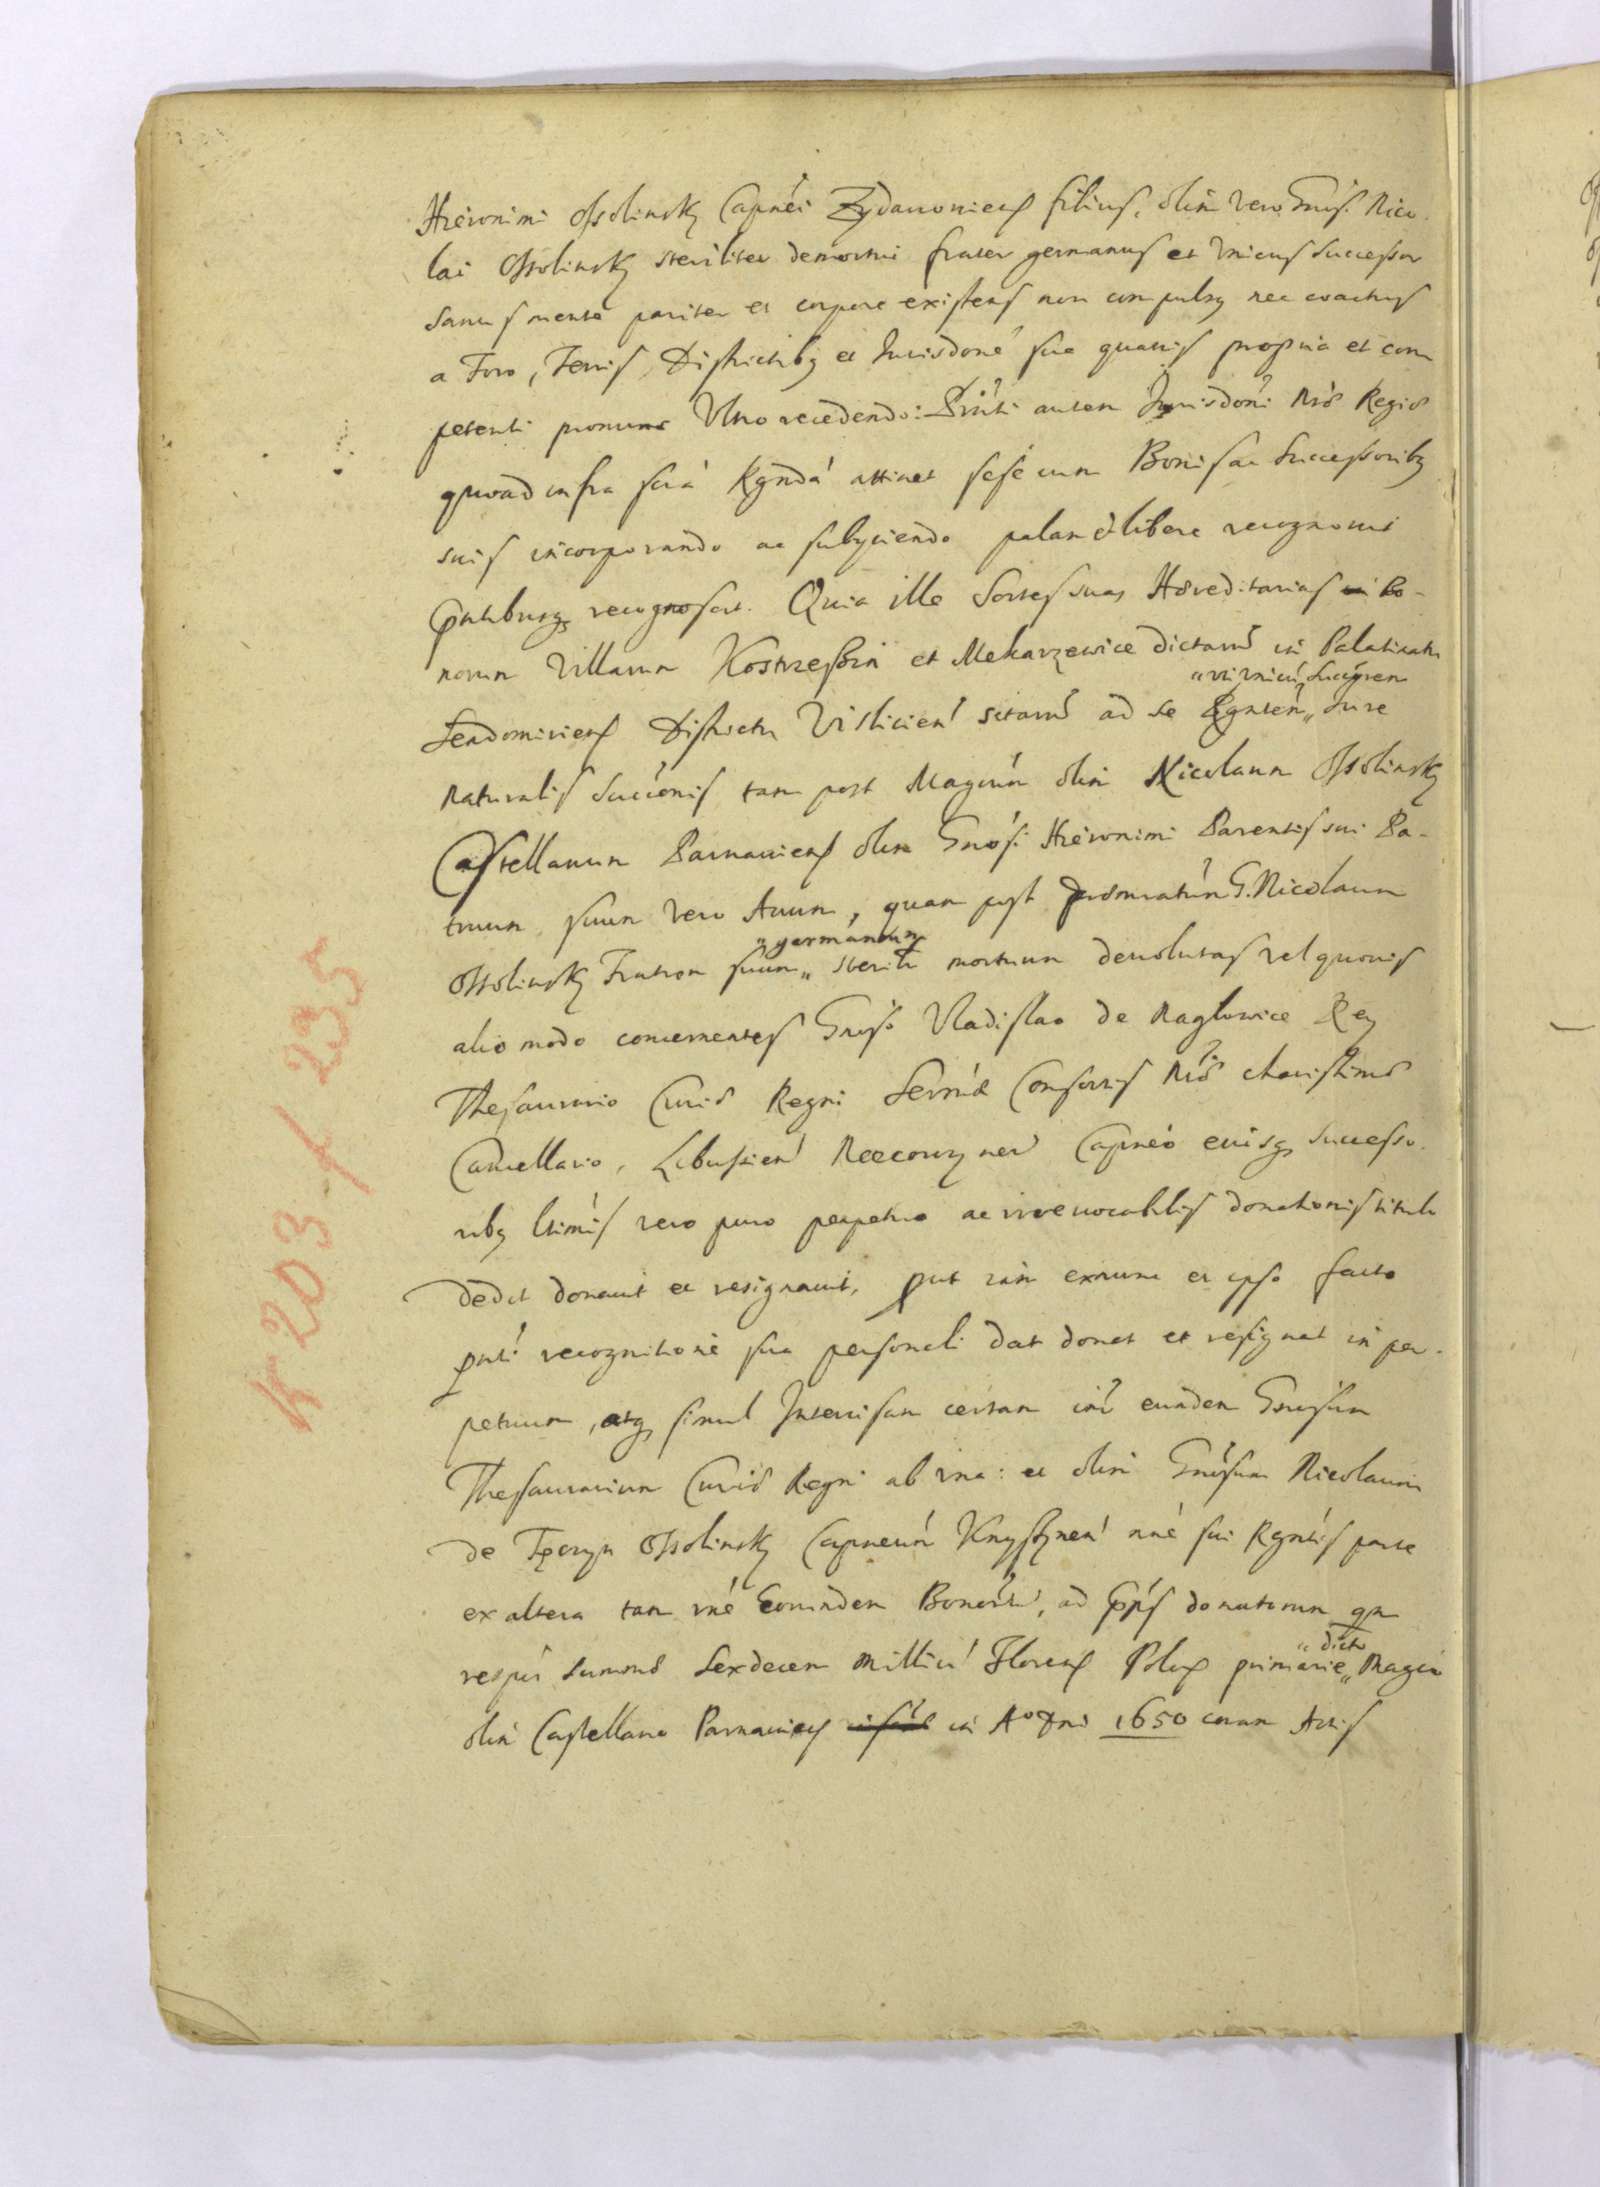 Hieronimi Ossolinsky Capnei Zydaczowiens filius, olim vero Gnosi Nico-
lai Ossolinsky steriliter demortui frater germanus et vnicus successor
sanus mente pariter et corpore existens non compulsus nec coactus
a Foro, Terris, Districtibq et Jurisdone sua quavis propria et com
petenti pronunc Vltro recedendo: autem Jurisdoni Nrae Regiae
quoad infra attinet sese cum Bonis ac Successoribq
suis incorporando ac subyciendo palam et libere recognovit
recognoscit. Quia ille Sortes suas Haereditarias in Bo-
norum Villarum et Mekarzewice dictarum in Palatinatu
Sendomiriens Districtu Vislicien sitarum ad se „ Jure
„vti vnicu Succoren
Naturalis Succonis tam post Magcum olim Nicolaum Ossolinsky
Castellanum Parnaviens olim Gnosi Hieronimi Parentis sui Pa-
truum suum vero Auum, quam post G. Nicolaum
Ossolinsky Fratrem suum „ sterili mortuum devolutas vel quovis
„germanum
alio modo concernentes Gnoso Vladislao de Naglowice Rey
Thesaurario Curiae Regni Sermae Consortis Nrae charissimae
Cancellario, Libusien Capneo eiusq successo-
ribq ltimis vero puro perpetuo ac irrevocabilis donationis titulo
dedit donavit et resignavit, put iam exnunc et ipso facto
pnti recognitione sua personali dat donat et resignat in per-
petuum, atq simul Intercisam certam inr eundem Gnosum
Thesaurarium Curiae Regni ab vna: et olim Gnosum Nicolaum
de Tęczyn Ossolinsky Capneum Knyszynen parte
ex altera tam rne Eorundem Bonorum, ad donatorum qm
respu summae Sexdecem Milliu Florens Polos primarie „ Magco
„dicto
olim Castellano Parnaviens in Ao Dni 1650 coram Actis
K 203 f 235